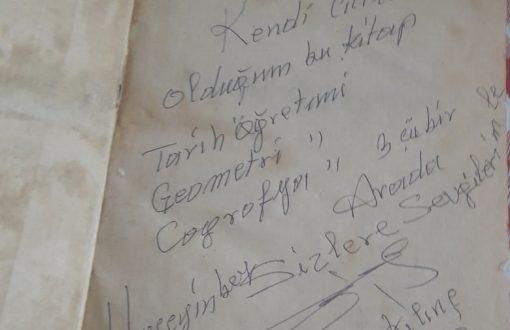 Kendi
Olduğum bu kitap
Tarih Öğretimi
Geometri "
Coğrofya " 3 ü bir
Arada
Sizlere Sevgilerimle